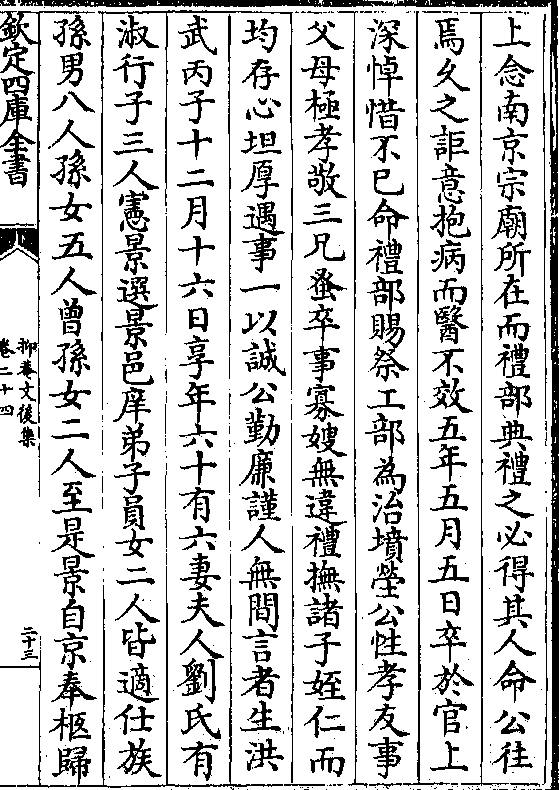 上念南京宗廟所在而禮部典禮之必得其人命公往
焉久之詎意抱病而醫不效五年五月五日卒於官上
深悼惜不已命禮部賜祭工部為治墳塋公性孝友事
父母極孝敬三兄蚤卒事寡嫂無違禮撫諸子姪仁而
均存心坦厚遇事一以誠公勤廉謹人無間言者生洪
武丙子十二月十六日享年六十有六妻夫人劉氏有
淑行子三人憲景選景邑庠弟子員女二人皆適仕族
孫男八人孫女五人曾孫女二人至是景自京奉柩歸
欽定四庫全書
抑菴文後集
卷二十四
二十三